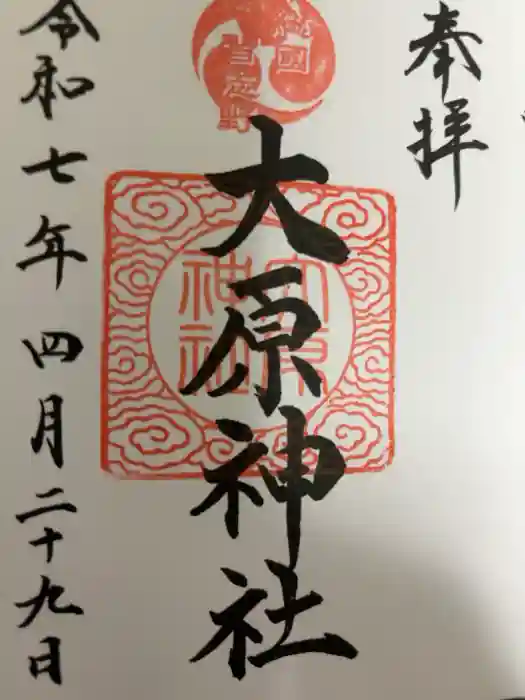 奉拝
大原神社
大原神社
令和七年四月二十九日